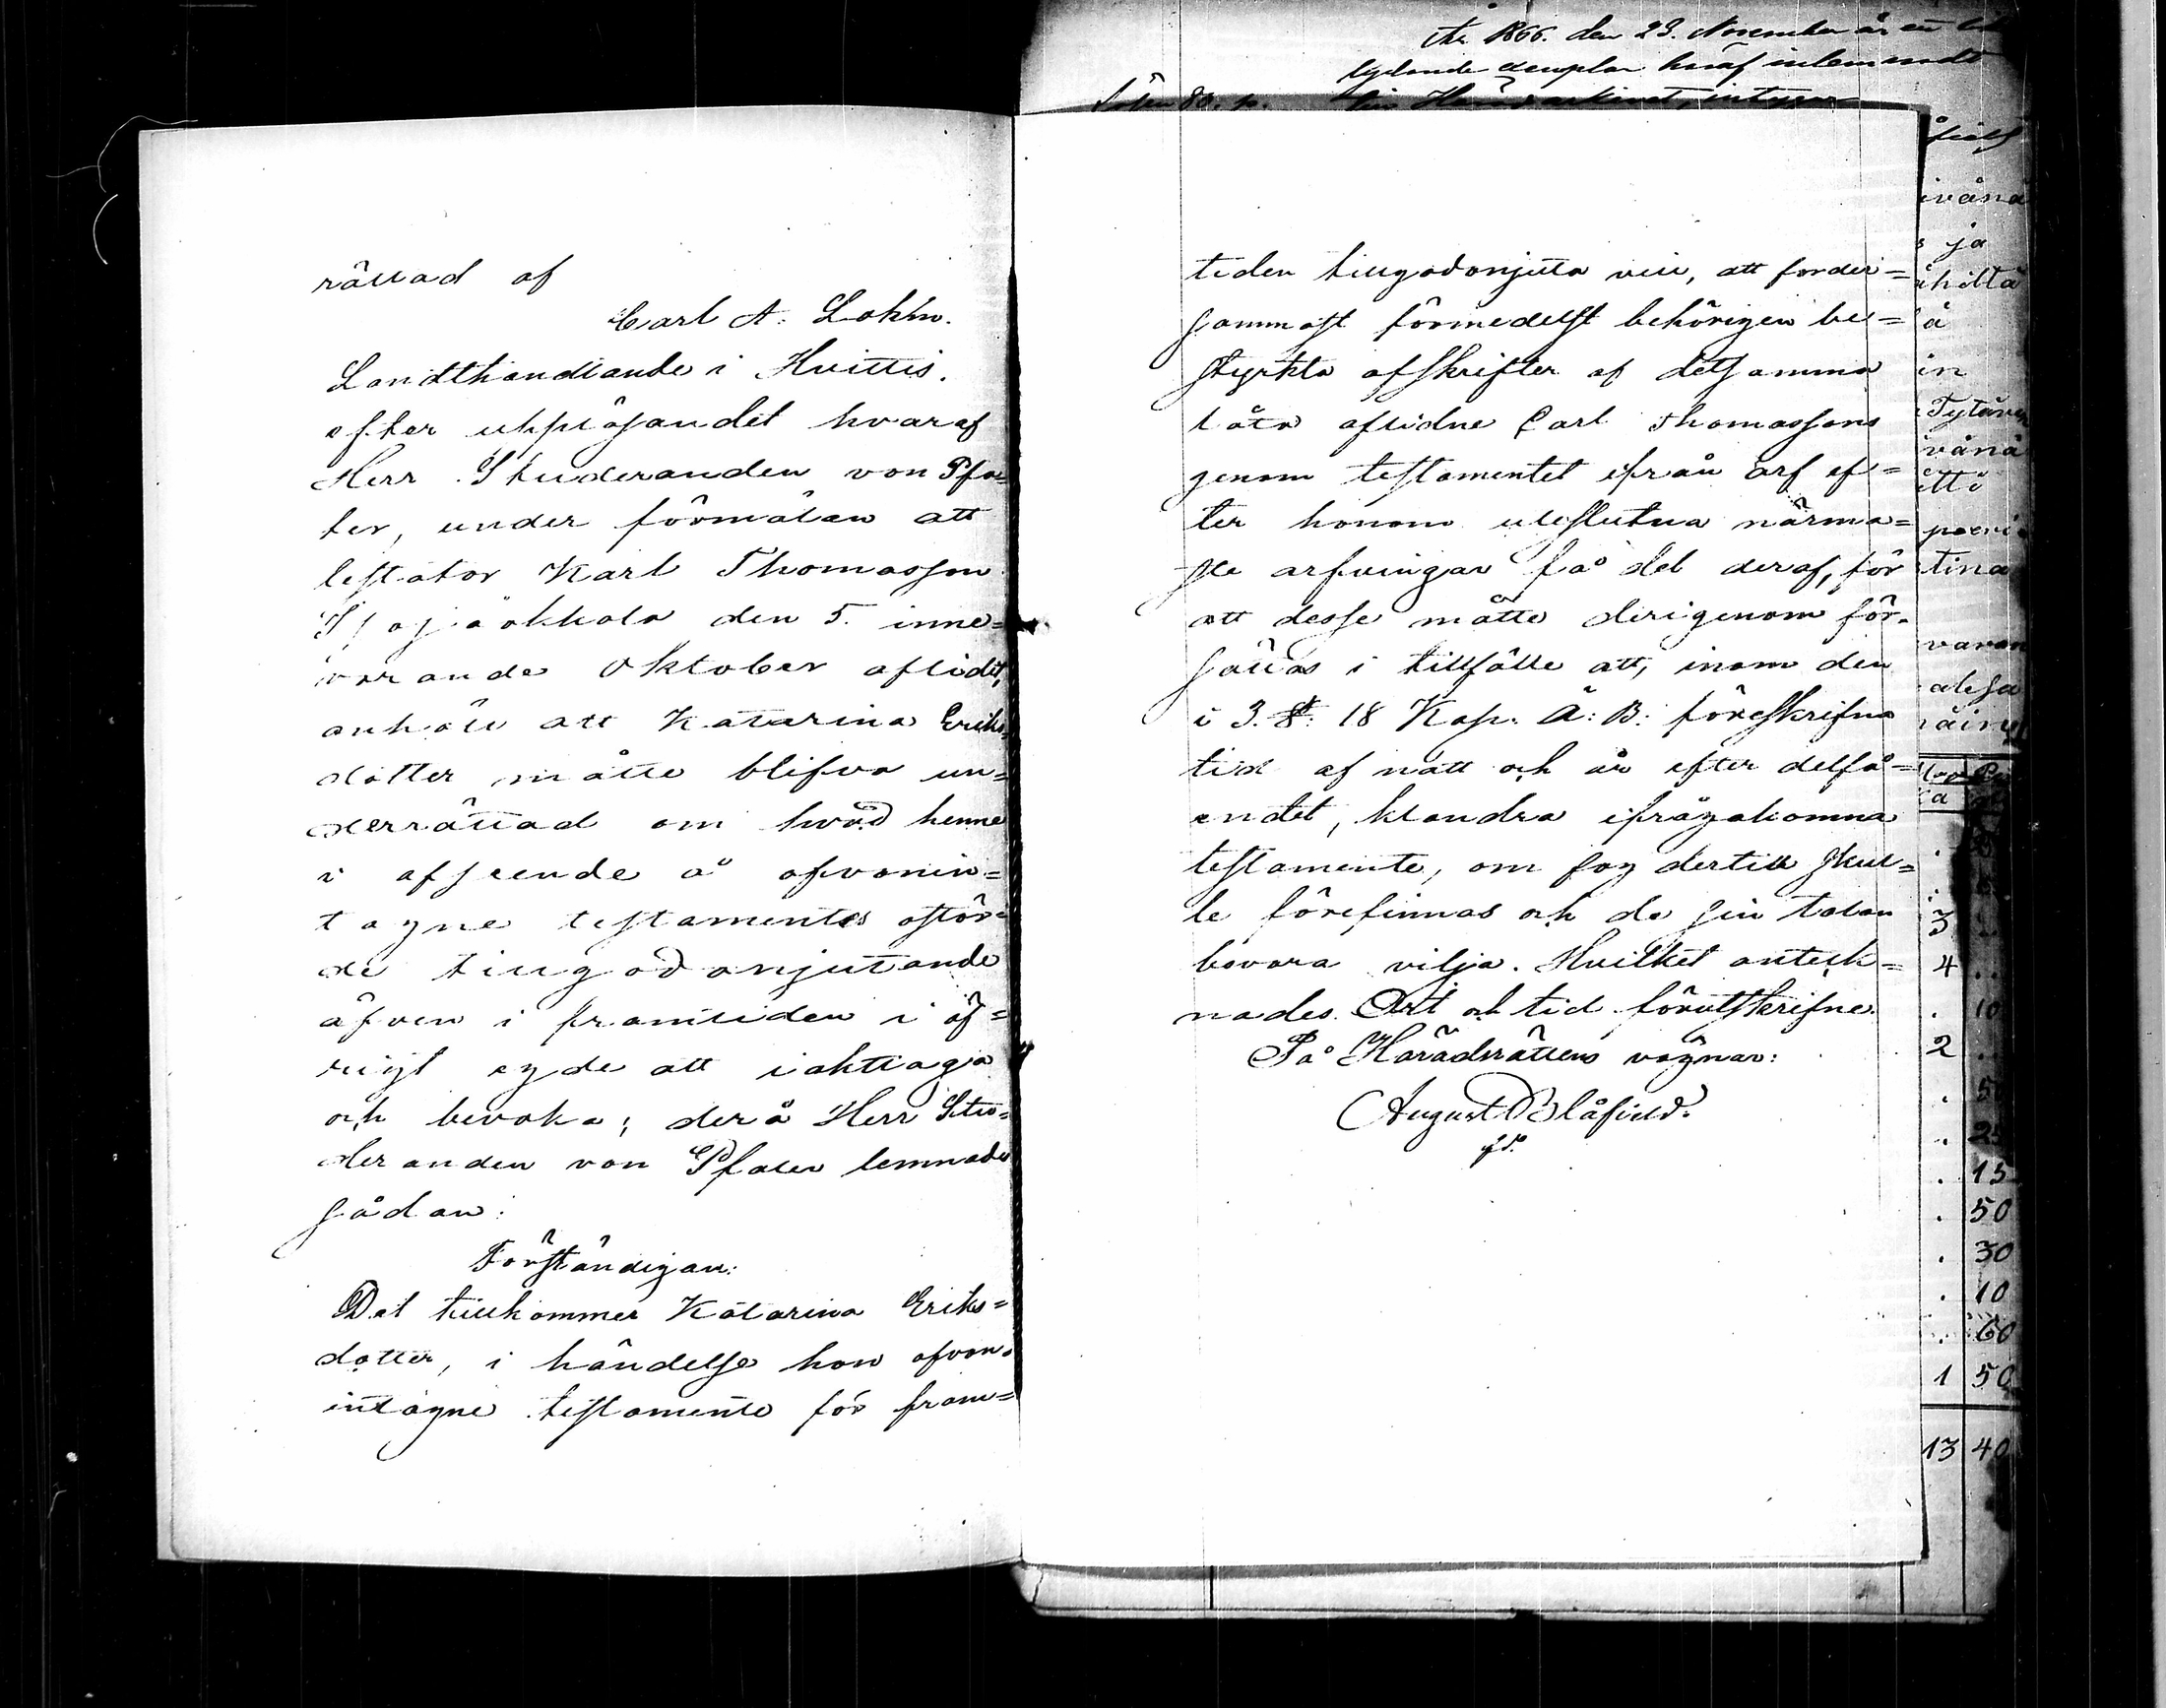 rättad af
Carl A. Lokhn.
Landthandlande i Huittis.
efter uppläsandet hvaraf
Herr Studeranden von Pfa=
ler, under förmälan att
testator Karl Thomasson
den 5. inne=
varande Oktober aflidit,
anhöll att Katarina Eriks=
dotter måtte blifva un=
derrättad om hvad henne
i afseende å ofvanin=
tagne testamentes ostör=
de tillgodonjutande
äfven i framtiden i öf=
rigt egde att iakttaga
och bevaka; derå Herr Stu=
deranden von Pfaler lemnade
sådan:
Förständigan:
Det tillkommer Katarina Eriks=
dotter, i händelse hon ofvan=
intagne testamente för fram=
tiden tillgodonjuta vill, att forder=
sammast förmedelst behörigen be=
styrkta afskrifter af detsamma
låta aflidne Carl Thomassons
genom testamentet ifrån arf ef=
ter honom uteslutna närma=
ste arfvingar få del deraf, för
att desse måtte derigenom för=
sättas i tillfälle att, inom den
i 3. §. 18 Kap. Ä: B: föreskrifna
tid af natt och år efter delfå=
endet, klandra ifrågakomna
testamente, om fog dertill skul=
le förefinnas och de sin talan
bevara vilja. Hvilket anteck=
nades. Ort och tid förutskrifne.
På Häradsrättens vägnar:
August Blåfield.
År 1866. den 23. November är ett
lydande exemplar häraf inlemnadt
ivänä
ja
ä
in
vänä
tina
3
4 ..
. 10
2 .
. 5
. 25
. 15
. 50
. 30
. 10
. 60
1 50
13 40